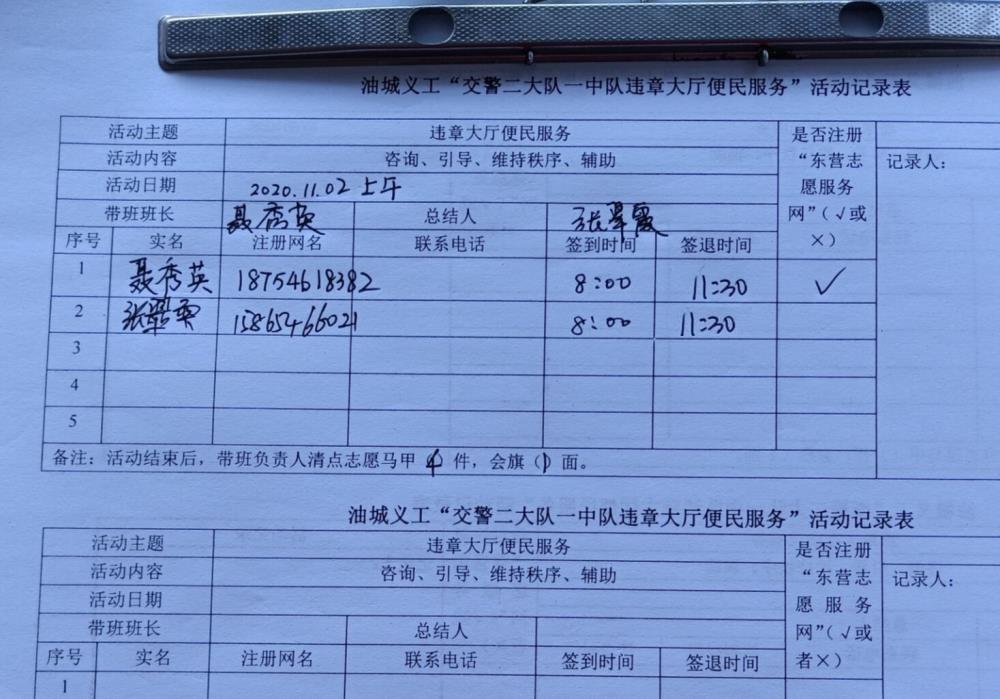 油城义工“交警二大队一中队违章大厅便民服务”活动记录表
活动主题 违章大厅便民服务
活动内容 咨询、引导、维持秩序、辅助
活动日期 2020.11.02 上午
带班班长 聂秀英 总结人 张翠霞
序号 实名 注册网名 联系电话 签到时间 签退时间
是否注册
“东营志
愿服务
网”(√或
×)
记录人：
1 聂秀英 18754618382 8:00 11:30 √
2 张翠霞 15865466021 8:00 11:30
3
4
5
备注：活动结束后，带班负责人清点志愿马甲 件，会旗(1)面。
油城义工“交警二大队一中队违章大厅便民服务”活动记录表
活动主题 违章大厅便民服务
活动内容 咨询、引导、维持秩序、辅助
活动日期
带班班长 总结人
序号 实名 注册网名 联系电话 签到时间 签退时间
是否注册
“东营志
愿服务
网”(√或
者×)
记录人：
1